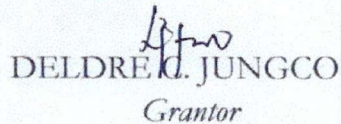 DELDRE C. JUNGCO
Grantor